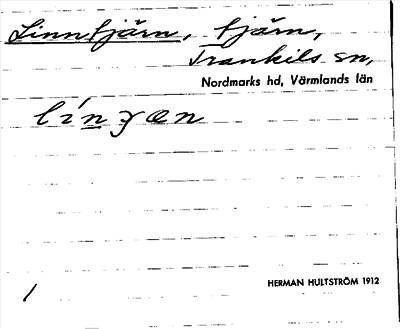 Linntjärn, tjärn,
Trankils sn,
Nordmarks hd, Värmlands län
HERMAN HULTSTRÖM 1912
1